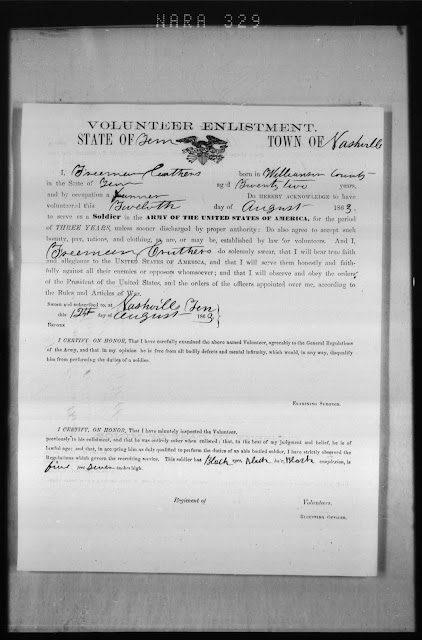 NARA 329
VOLUNTEER ENLISTMENT.
STATE OF Tenn TOWN OF Nashville
I, Freeman Cruthers born in Williamson County
in the State of Tenn aged Twenty two years,
and by occupation a Farmer Do HEREBY ACKNOWLEDGE to have
volunteered this Twelvth day of August 1863,
to serve as a Soldier in the ARMY OF THE UNITED STATES OF AMERICA, for the period
of THREE YEARS, unless sooner discharged by proper authority: Do also agree to accept such
bounty, pay, rations, and clothing, as are, or may be, established by law for volunteers. And I,
Freeman Cruthers do solemnly swear, that I will bear true faith
and allegiance to the UNITED STATES OF AMERICA, and that I will serve them honestly and faith-
fully against all their enemies or opposers whomsoever; and that I will observe and obey the orders
of the President of the United States, and the orders of the officers appointed over me, according to
the Rules and Articles of War.
Sworn and subscribed to, at Nashville Tenn
this 12th day of August 1863
BEFORE
I CERTIFY, ON HONOR, That I have carefully examined the above named Volunteer, agreeably to the General Regulations
of the Army, and that in my opinion he is free from all bodily defects and mental infirmity, which would, in any way, disqualify
him from performing the duties of a soldier.
EXAMINING SURGEON.
I CERTIFY, ON HONOR, That I have minutely inspected the Volunteer,
previously to his enlistment, and that he was entirely sober when enlisted; that, to the best of my judgment and belief, he is of
lawful age; and that, in accepting him as duly qualified to perform the duties of an able bodied soldier, I have strictly observed the
Regulations which govern the recruiting service. This soldier has Black eyes, Black hair, Black complexion, is
five feet seven inches high.
Regiment of Volunteers.
RECRUITING OFFICER.